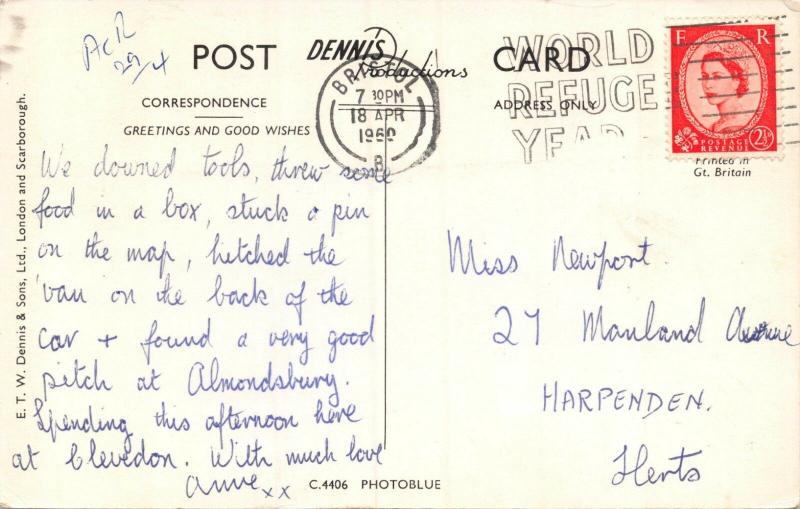 AcR
29/4
POST CARD
DENNIS
Productions
CORRESPONDENCE
ADDRESS ONLY
GREETINGS AND GOOD WISHES
BRISTOL
7 30PM
18 APR
1960
B
WORLD
REFUGE
YEAR
E R
POSTAGE
REVENUE
2½
Printed in
Gt. Britain
E. T. W. Dennis & Sons, Ltd., London and Scarborough.
We downed tools, threw some
food in a box, stuck a pin
on the map, hitched the
'van on the back of the
car + found a very good
pitch at Almondsbury.
Spending this afternoon here
at Clevedon. With much love
Anne xx
Miss Newport.
27 Manland Avenue
HARPENDEN.
Herts
C.4406 PHOTOBLUE